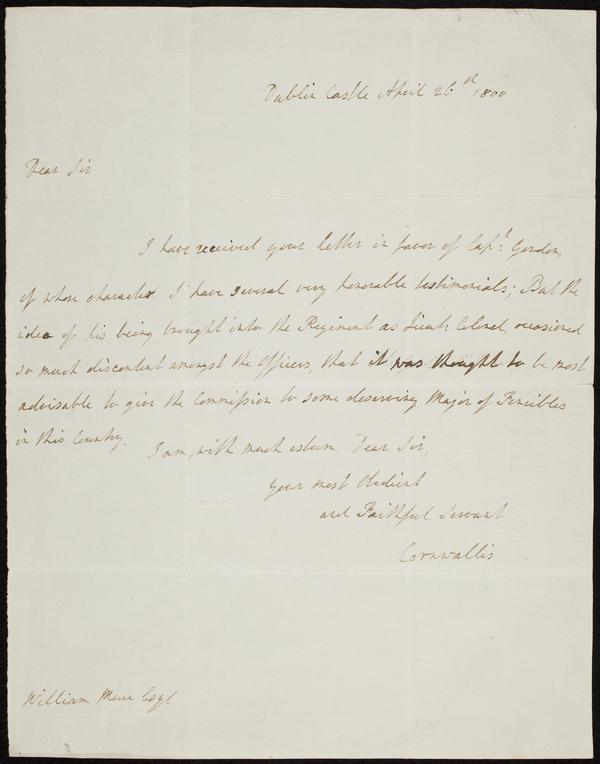 Dublin Castle April 26th 1800
Dear Sir
I have received your letter in favor of Capt: Gordon,
of whose character I have several very honorable testimonials; But the
idea of his being brought into the Regiment as Lieut: Colonel, occasioned
so much discontent amongst the Officers, that it was thought to be most
advisable to give the Commission to some deserving Major of Fencibles
in this Country.
I am, with much esteem, Dear Sir,
your most Obedient
and Faithful Servant
Cornwallis
William Mure Esqr